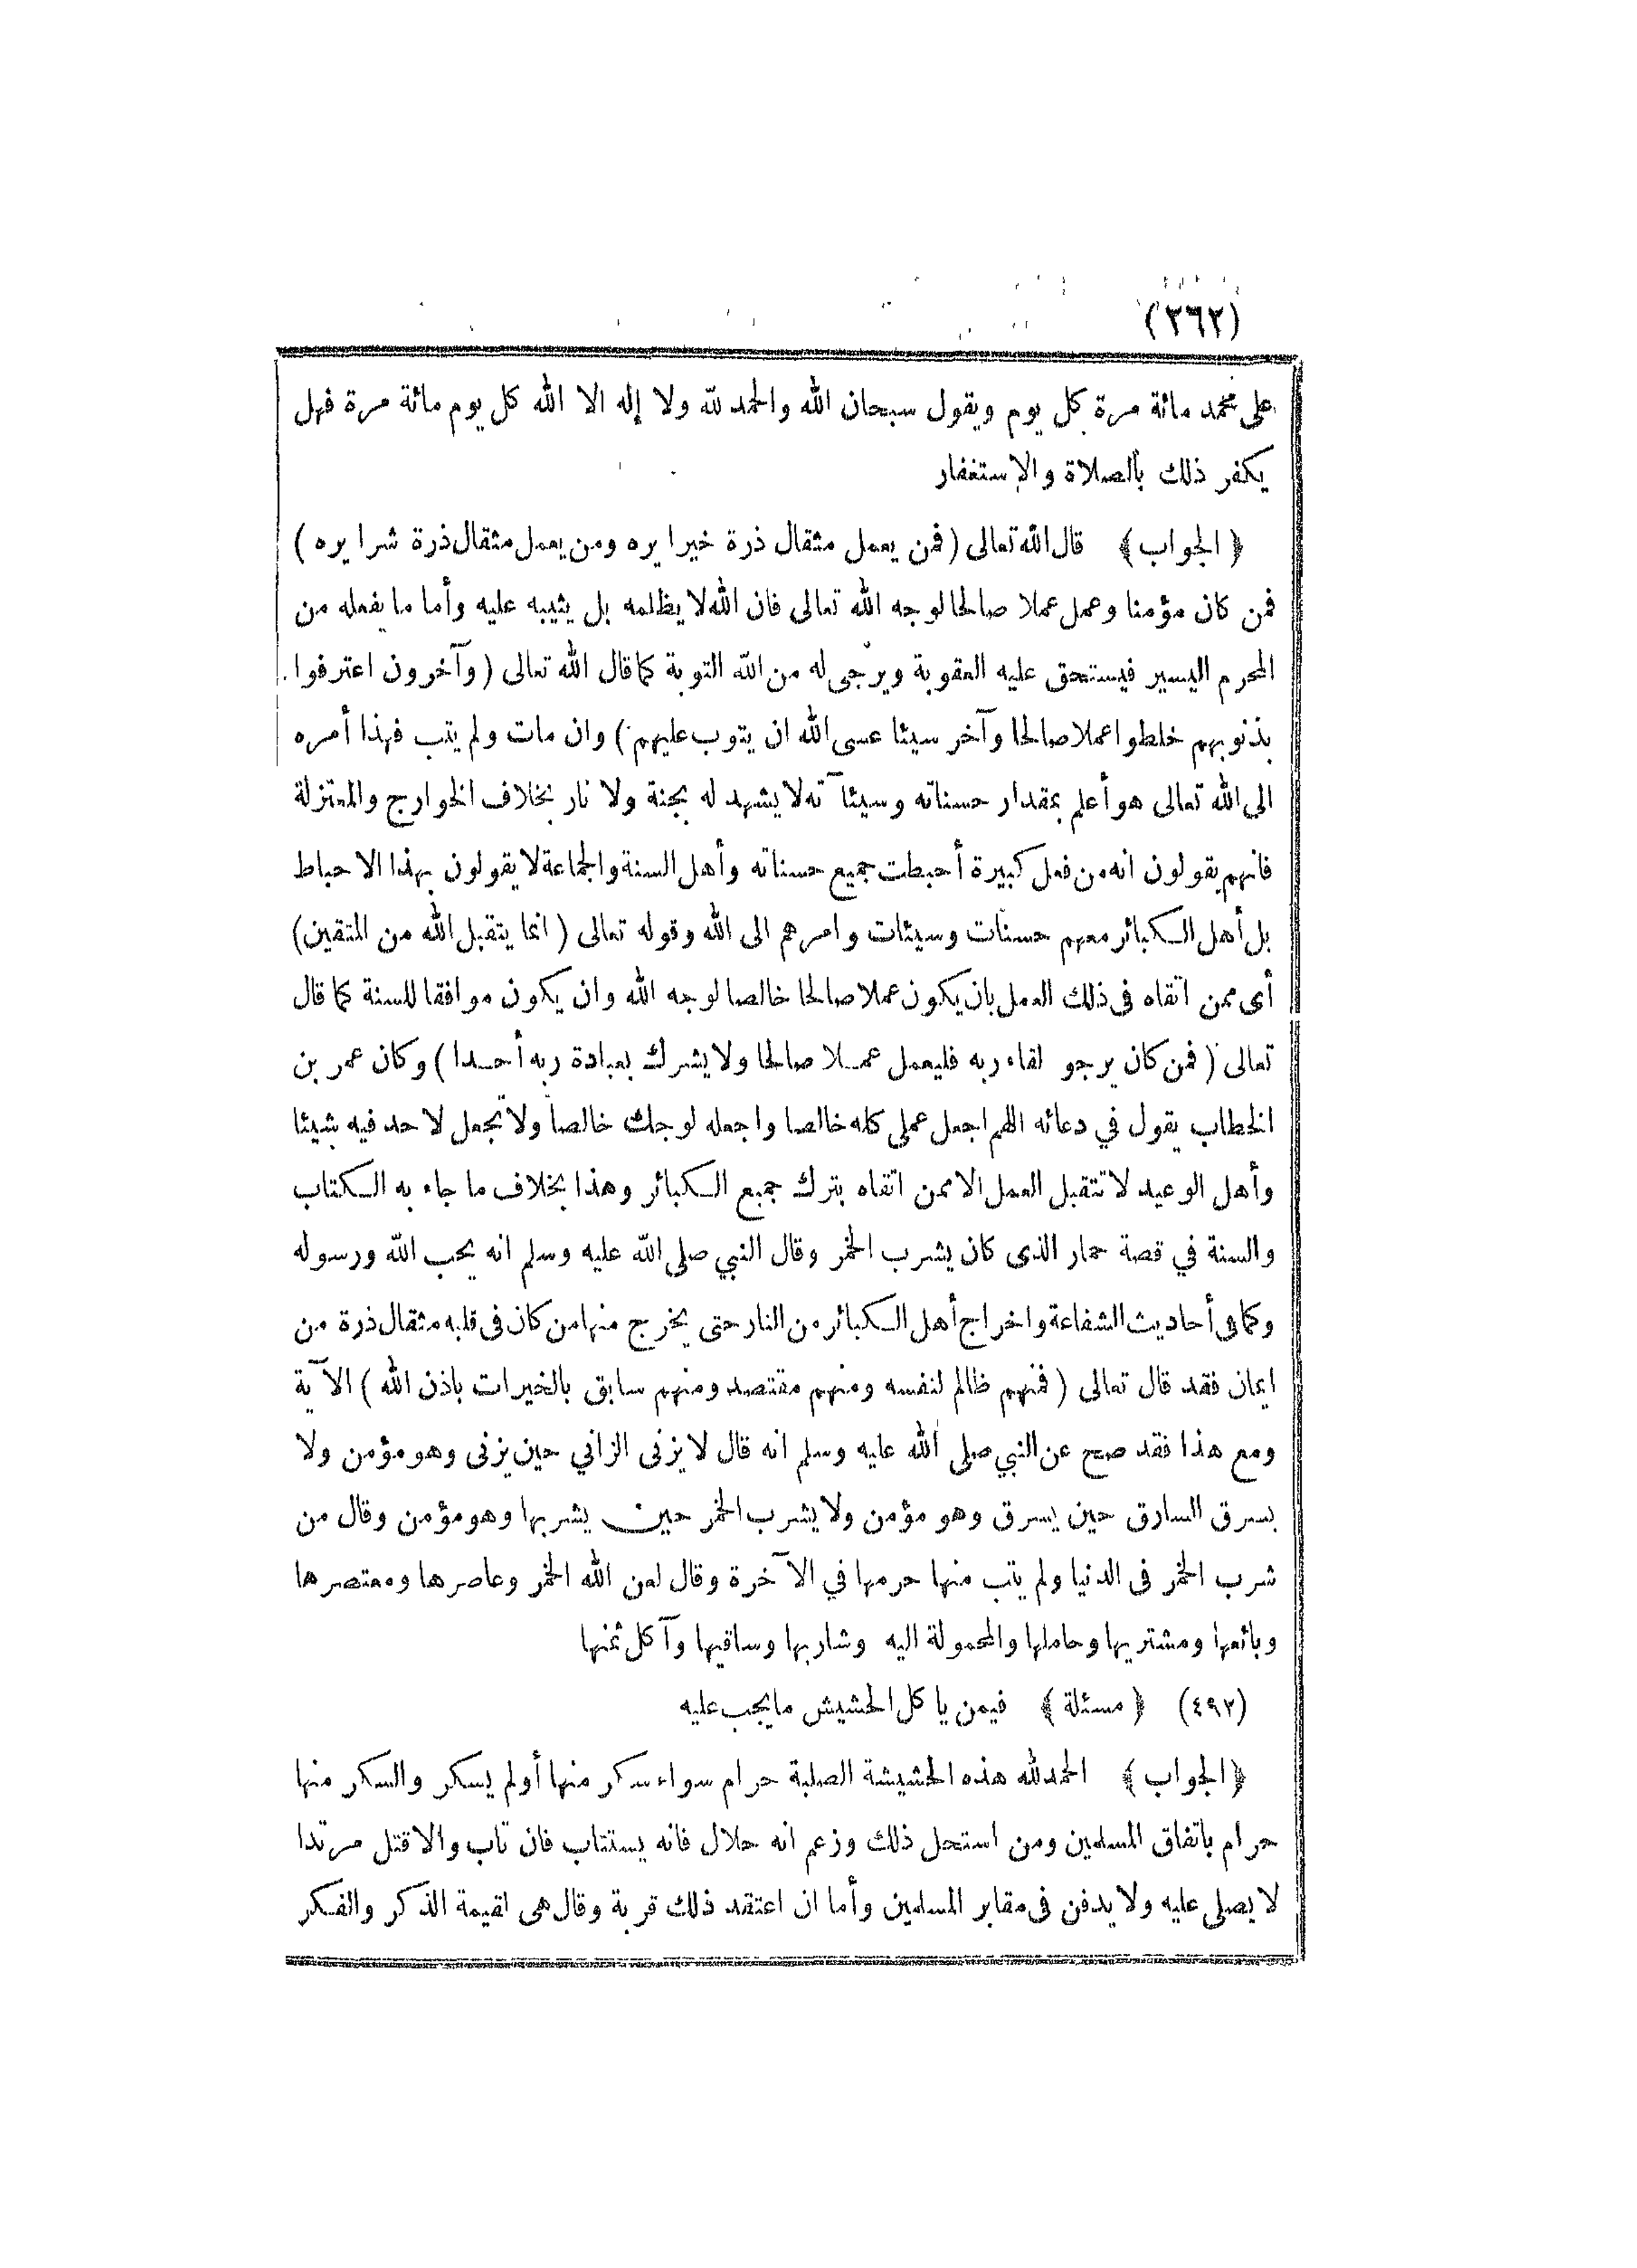 (٢٦٢)
على محمد مائة مرة كل يوم ويقول سبحان الله والحمد لله ولا إله الا الله كل يوم مائة مرة فهل
يكفر ذلك بالصلاة والإستغفار
﴿ الجواب ﴾ قال الله تعالى ( فمن يعمل مثقال ذرة خيرا يره ومن يعمل مثقال ذرة شرا يره )
فمن كان مؤمنا وعمل عملا صالحا لوجه الله تعالى فان الله لا يظلمه بل يثيبه عليه وأما ما يفعله من
المحرم اليسير فيستحق عليه العقوبة ويرجى له من الله التوبة كما قال الله تعالى ( وآخرون اعترفوا
بذنوبهم خلطوا عملا صالحا وآخر سيئا عسى الله ان يتوب عليهم ) وان مات ولم يتب فهذا أمره
الى الله تعالى هو أعلم بمقدار حسناته وسيئآته لا يشهد له بجنة ولا نار بخلاف الخوارج والمعتزلة
فانهم يقولون انه من فعل كبيرة أحبطت جميع حسناته وأهل السنة والجماعة لا يقولون بهذا الاحباط
بل أهل الكبائر معهم حسنات وسيئات وامرهم الى الله وقوله تعالى ( انما يتقبل الله من المتقين )
أى ممن اتقاه فى ذلك العمل بان يكون عملا صالحا خالصا لوجه الله وان يكون موافقا للسنة كما قال
تعالى ( فمن كان يرجو لقاء ربه فليعمل عملا صالحا ولا يشرك بعبادة ربه أحدا ) وكان عمر بن
الخطاب يقول في دعائه اللهم اجعل عملى كله خالصا واجعله لوجك خالصا ولا تجعل لاحد فيه شيئا
وأهل الوعيد لا تتقبل العمل الا ممن اتقاه بترك جميع الكبائر وهذا بخلاف ما جاء به الكتاب
والسنة في قصة حمار الذى كان يشرب الخمر وقال النبي صلى الله عليه وسلم انه يحب الله ورسوله
وكما فى أحاديث الشفاعة واخراج أهل الكبائر من النار حتى يخرج منها من كان فى قلبه مثقال ذرة من
ايمان فقد قال تعالى ( فمنهم ظالم لنفسه ومنهم مقتصد ومنهم سابق بالخيرات باذن الله ) الآية
ومع هذا فقد صح عن النبي صلى الله عليه وسلم انه قال لا يزنى الزاني حين يزنى وهو مؤمن ولا
يسرق السارق حين يسرق وهو مؤمن ولا يشرب الخمر حين يشربها وهو مؤمن وقال من
شرب الخمر فى الدنيا ولم يتب منها حرمها في الآخرة وقال لعن الله الخمر وعاصرها ومعتصرها
وبائعها ومشتريها وحاملها والمحمولة اليه وشاربها وساقيها وآكل ثمنها
(٤٩٢) ﴿ مسئلة ﴾ فيمن ياكل الحشيش ما يجب عليه
﴿ الجواب ﴾ الحمد لله هذه الحشيشة الصلبة حرام سواء سكر منها أو لم يسكر والسكر منها
حرام باتفاق المسلمين ومن استحل ذلك وزعم انه حلال فانه يستتاب فان تاب والا قتل مرتدا
لا يصلى عليه ولا يدفن فى مقابر المسلمين وأما ان اعتقد ذلك قربة وقال هى لقيمة الذكر والفكر